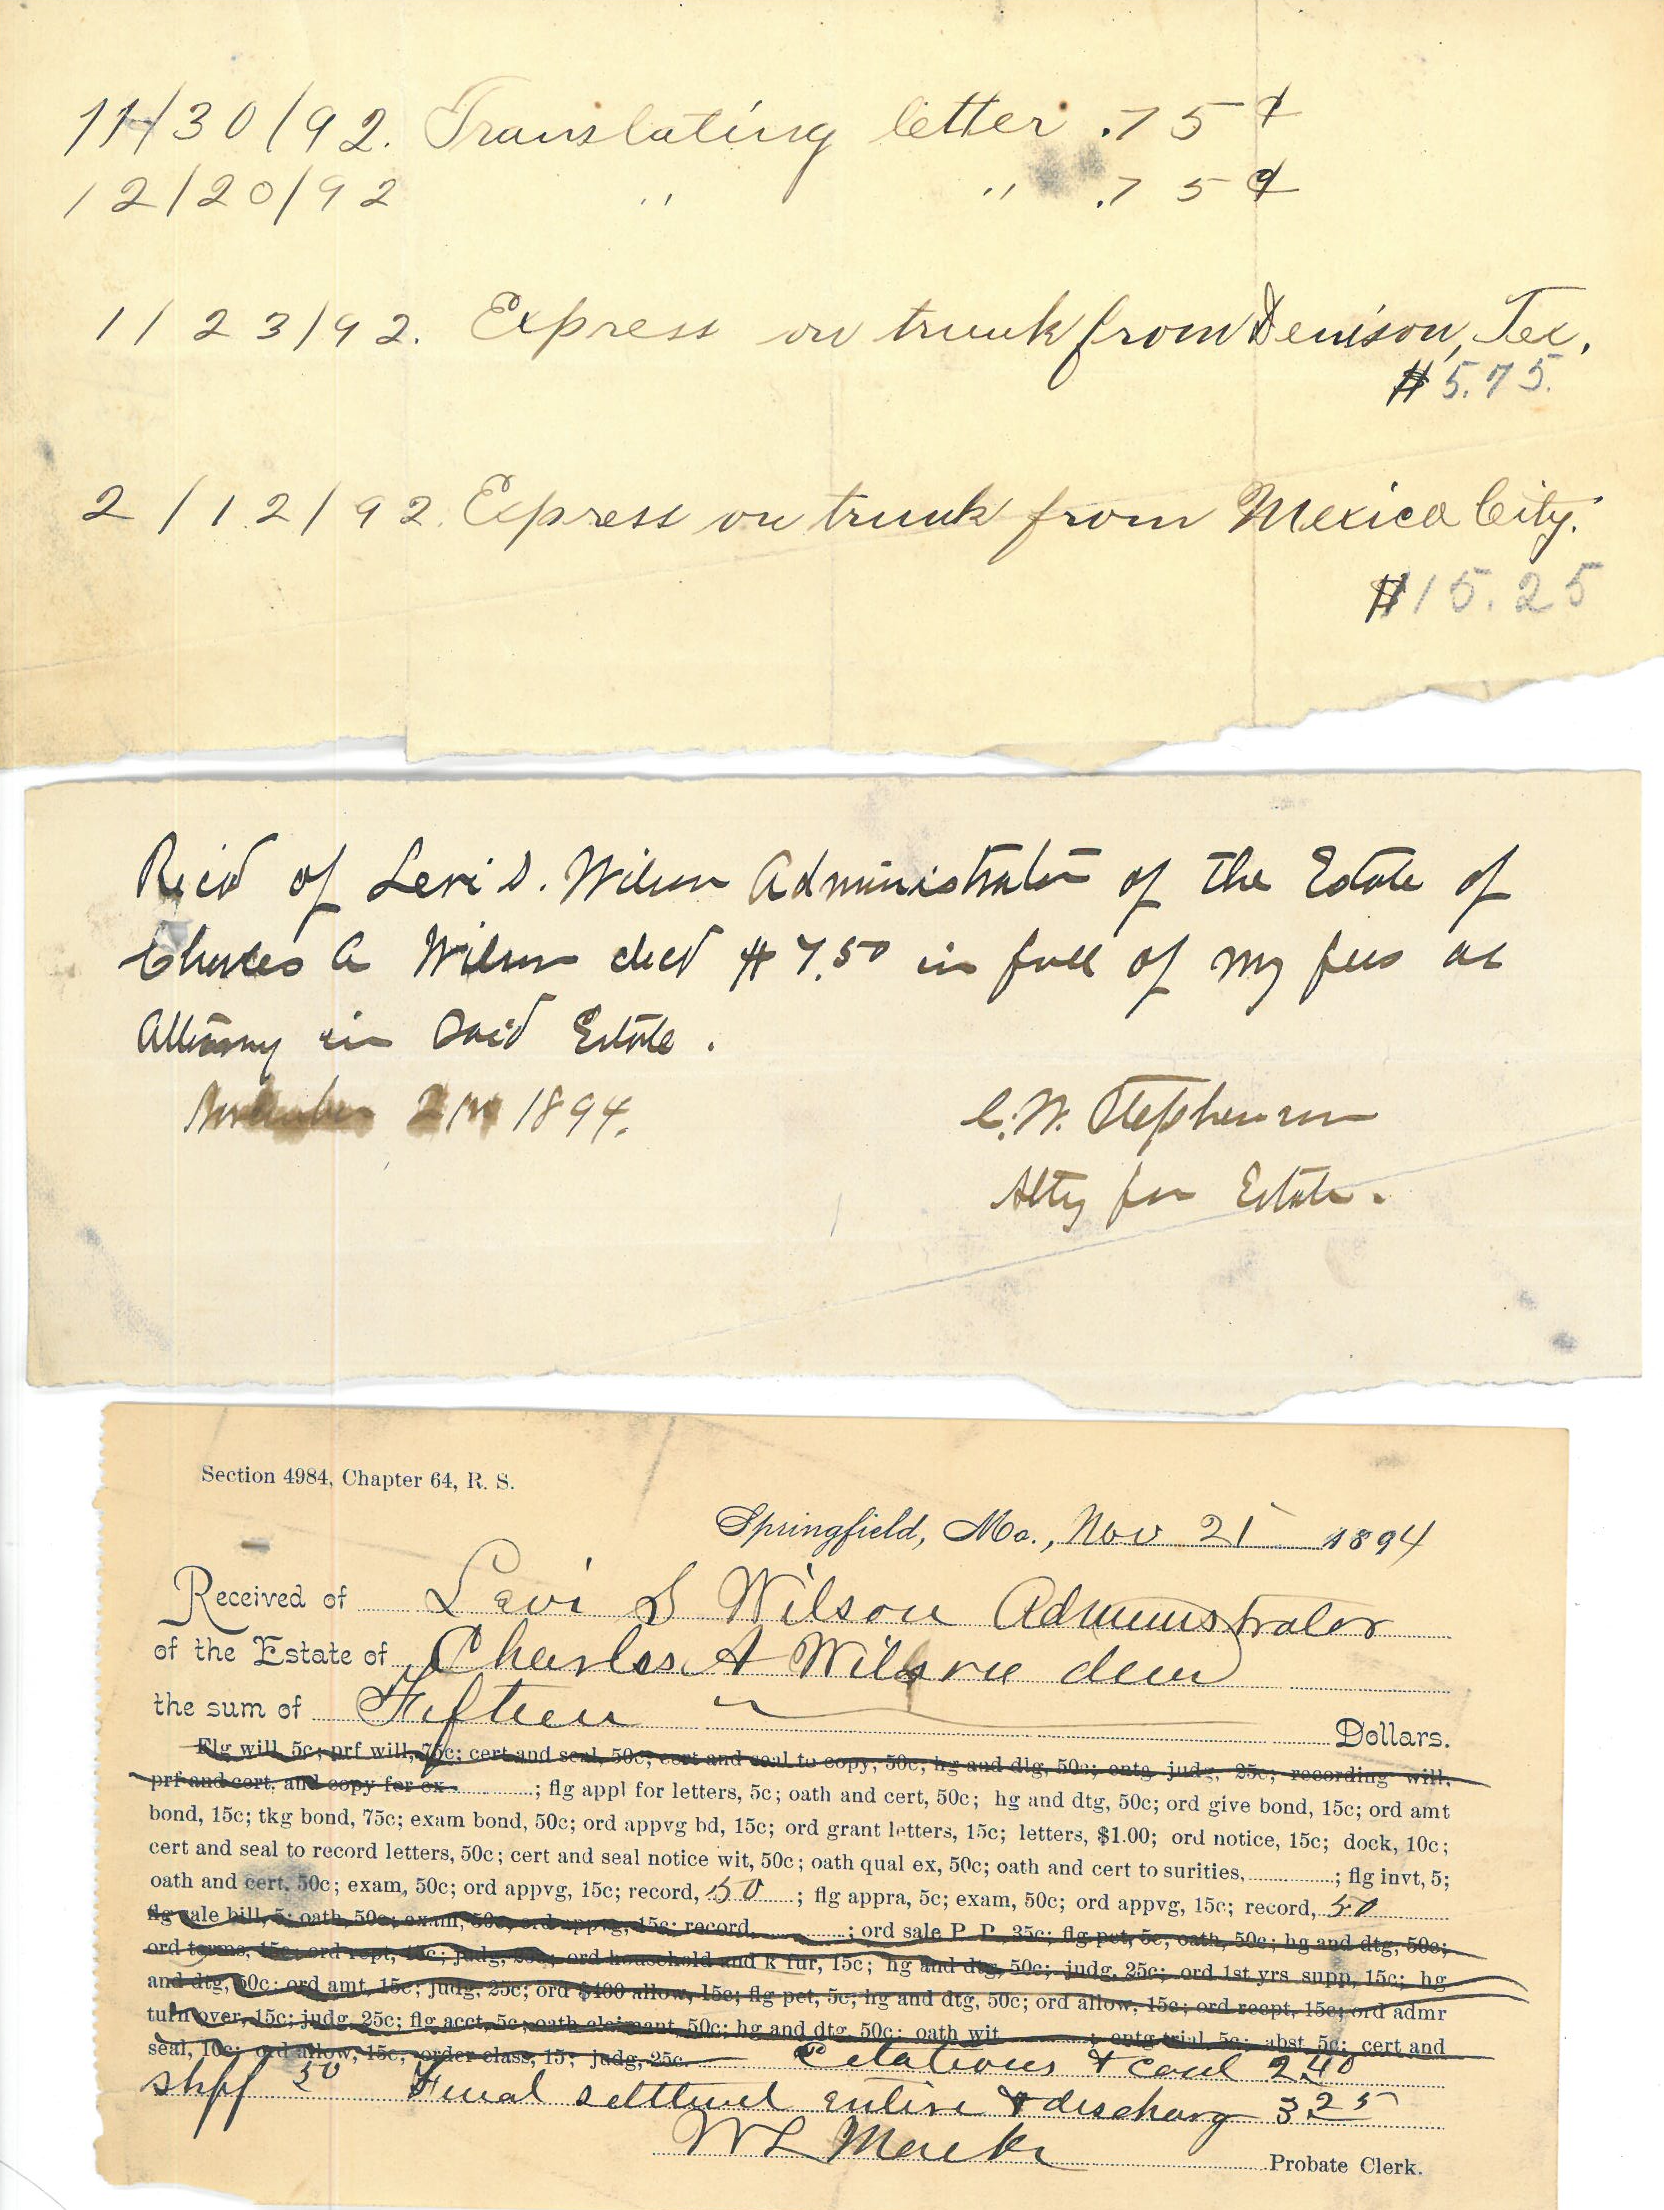 11/30/92. Translating letter .75¢
12/20/92 " " .75¢
1/23/92. Express on trunk from Denison, Tex.
$5.75.
2/12/92. Express on trunk from Mexico City.
$15.25
Recd of Levi S. Wilson Administrator of the Estate of
Charles A Wilson decd $7.50 in full of my fees as
Attorney in said Estate.
November 1894.
C. W. Stephenson
Atty for Estate.
Section 4984, Chapter 64, R. S.
Springfield, Mo., Nov 21 1894
Received of Levi S Wilson Administrator
of the Estate of Charles A Wilson
the sum of Fifteen Dollars.
Flg will, 5c; prf will, 75c; cert and seal, 50c; cert and seal to copy, 50c; hg and dtg, 50c; entg judg, 25c; recording will,
prf and cert, and copy for ex ; flg appl for letters, 5c; oath and cert, 50c; hg and dtg, 50c; ord give bond, 15c; ord amt
bond, 15c; tkg bond, 75c; exam bond, 50c; ord appvg bd, 15c; ord grant letters, 15c; letters, $1.00; ord notice, 15c; dock, 10c;
cert and seal to record letters, 50c; cert and seal notice wit, 50c; oath qual ex, 50c; oath and cert to surities, ; flg invt, 5;
oath and cert, 50c; exam, 50c; ord appvg, 15c; record, 50 ; flg appra, 5c; exam, 50c; ord appvg, 15c; record, 50
flg sale bill, 5; oath, 50c; exam, 50c; ord appvg, 15c; record, ; ord sale P. P., 35c; flg pet, 5c, oath, 50c; hg and dtg, 50c;
ord terms, 15c; ord rept, 15c; judg, 25c; ord household and k fur, 15c; hg and dtg, 50c; judg, 25c; ord 1st yrs supp, 15c; hg
and dtg, 50c; ord amt, 15c; judg, 25c; ord $400 allow, 15c; flg pet, 5c; hg and dtg, 50c; ord allow, 15c; ord recpt, 15c; ord admr
turn over, 15c; judg, 25c; flg acct, 5c; oath claimant, 50c; hg and dtg, 50c; oath wit ; entg trial, 5c; abst, 5c; cert and
seal, 10c; ord allow, 15c, order class, 15; judg, 25c. Citations & 2.40
50 Final 3.25
Probate Clerk.